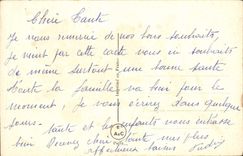 Chère Tante
Je vous remercie de vos bons souhaits,
je vient par cette carte vous en souhaiter
de même surtout une bonne santé
toute la famille va bien pour le
moment, je vous écrirez dans quelque
jours. tante et les enfants vous embrasse
bien Recevez chère tante mes plus
affectueux baisers
A&C